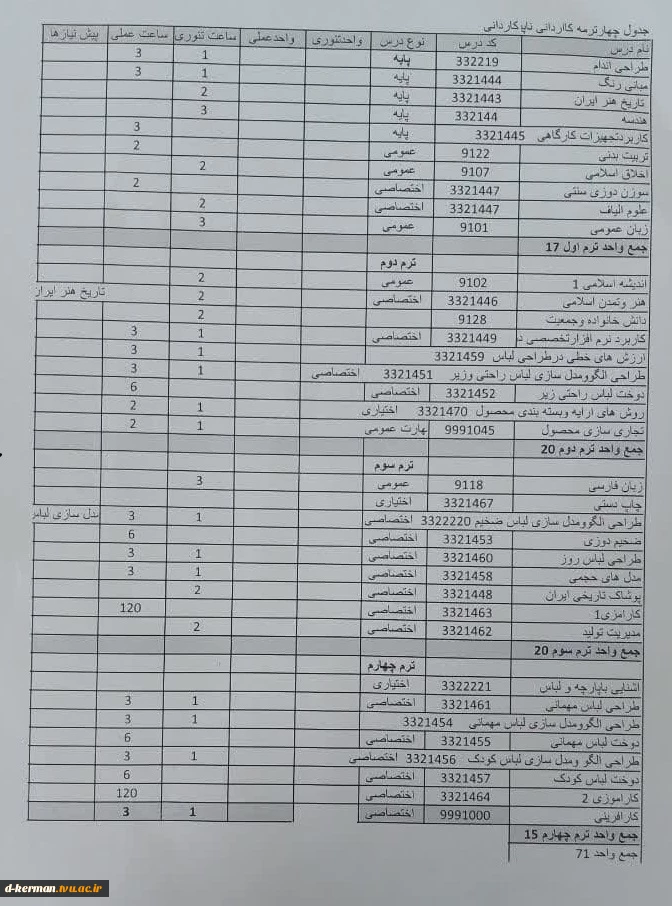 جدول چهارترمه کااردانی ناپاکاردانی
نام درس کد درس نوع درس واحدتئوری واحدعملی ساعت تئوری ساعت عملی پیش نیازها
طراحی اندام 332219 پایه 1 3
مبانی رنگ 3321444 پایه 1 3
تاریخ هنر ایران 3321443 پایه 2
هندسه 332144 پایه 3
کاربردتجهیزات کارگاهی 3321445 پایه 3
تربیت بدنی 9122 عمومی 2
اخلاق اسلامی 9107 عمومی 2
سوزن دوزی سنتی 3321447 اختصاصی 2
علوم الیاف 3321447 اختصاصی 2
زبان عمومی 9101 عمومی 3
جمع واحد ترم اول 17
ترم دوم
اندیشه اسلامی 1 9102 عمومی 2
هنر وتمدن اسلامی 3321446 اختصاصی 2 تاریخ هنر ایران
دانش خانواده وجمعیت 9128 2
کاربرد نرم افزارتخصصی د 3321449 اختصاصی 1 3
ارزش های خطی درطراحی لباس 3321459 1 3
طراحی الگوومدل سازی لباس راحتی وزیر 3321451 اختصاصی 1 3
دوخت لباس راحتی زیر 3321452 اختصاصی 6
روش های ارایه وبسته بندی محصول 3321470 اختیاری 1 2
تجاری سازی محصول 9991045 بهارت عمومی 1 2
جمع واحد ترم دوم 20
ترم سوم
زبان فارسی 9118 عمومی 3
چاپ دستی 3321467 اختیاری
طراحی الگوومدل سازی لباس ضخیم 3322220 اختصاصی 1 3 مدل سازی لباس
ضخیم دوزی 3321453 اختصاصی 6
طراحی لباس روز 3321460 اختصاصی 1 3
مدل های حجمی 3321458 اختصاصی 1 3
پوشاک تاریخی ایران 3321448 اختصاصی 2
کارامزی1 3321463 اختصاصی 120
مدیریت تولید 3321462 اختصاصی 2
جمع واحد ترم سوم 20
ترم چهارم
اشنایی باپارچه و لباس 3322221 اختیاری
طراحی لباس مهمانی 3321461 اختصاصی 1 3
طراحی الگوومدل سازی لباس مهمانی 3321454 1 3
دوخت لباس مهمانی 3321455 اختصاصی 6
طراحی الگو ومدل سازی لباس کودک 3321456 اختصاصی 1 3
دوخت لباس کودک 3321457 اختصاصی 6
کاراموزی 2 3321464 اختصاصی 120
کارافرینی 9991000 اختصاصی 1 3
جمع واحد ترم چهارم 15
جمع واحد 71
d-kerman.tvu.ac.ir